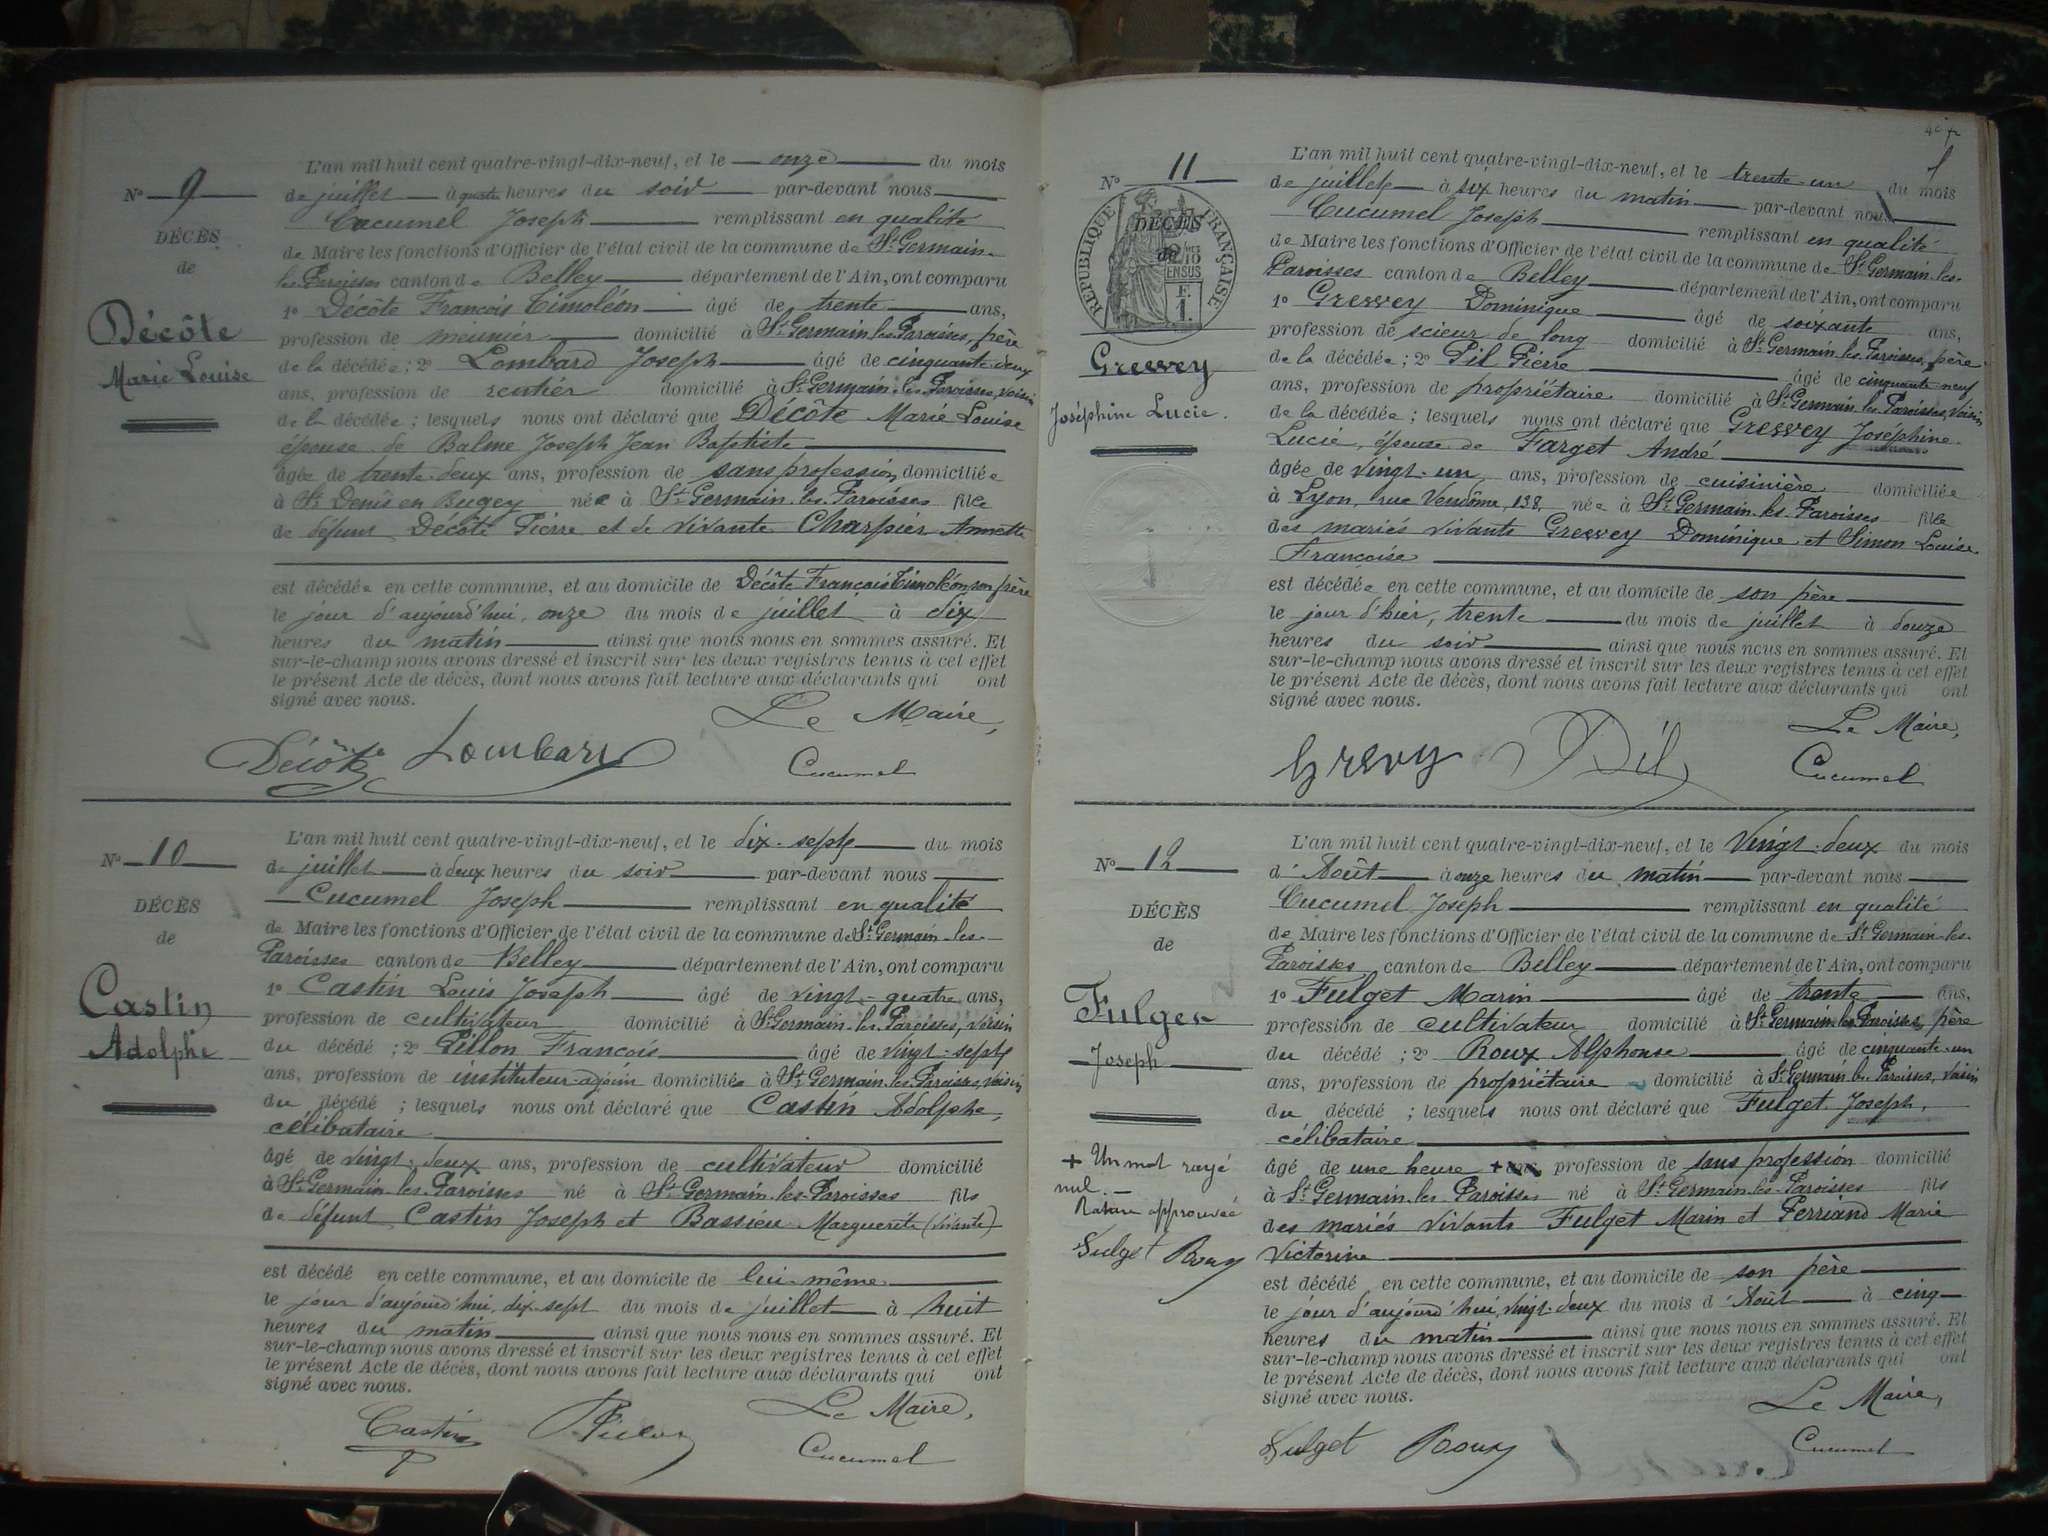 N° 9
DÉCÈS
de
Décôte
Marie Louise
L'an mil huit cent quatre-vingt-dix-neuf, et le onze du mois
de juillet à quatre heures du soir par-devant nous
Cucumel Joseph remplissant en qualité
de Maire les fonctions d'Officier de l'état civil de la commune de St Germain-
les-Paroisses canton de Belley département de l'Ain, ont comparu
1° Décôte François Timoléon âgé de trente ans,
profession de meunier domicilié à St Germain-les-Paroisses, père
de la décédée ; 2° Lombard Joseph âgé de cinquante-deux
ans, profession de rentier domicilié à St Germain-les-Paroisses, voisin
de la décédée ; lesquels nous ont déclaré que Décôte Marie Louise
épouse de Balme Joseph Jean Baptiste
âgée de trente-deux ans, profession de sans profession, domiciliée
à St Denis en Bugey née à St Germain-les-Paroisses fille
de défunt Décôte Pierre et de vivante Charpier Annette
est décédée en cette commune, et au domicile de Décôte François Timoléon, son père
le jour d'aujourd'hui, onze du mois de juillet à dix
heures du matin ainsi que nous nous en sommes assuré. Et
sur-le-champ nous avons dressé et inscrit sur les deux registres tenus à cet effet
le présent Acte de décès, dont nous avons fait lecture aux déclarants qui ont
signé avec nous.
Le Maire,
Décôte Lombard Cucumel
N° 10
DÉCÈS
de
Castin
Adolphe
L'an mil huit cent quatre-vingt-dix-neuf, et le dix-sept du mois
de juillet à deux heures du soir par-devant nous
Cucumel Joseph remplissant en qualité
de Maire les fonctions d'Officier de l'état civil de la commune de St Germain-les-
Paroisses canton de Belley département de l'Ain, ont comparu
1° Castin Louis Joseph âgé de vingt-quatre ans,
profession de cultivateur domicilié à St Germain-les-Paroisses, voisin
du décédé ; 2° Pillon François âgé de vingt-sept
ans, profession de instituteur-adjoint domiciliés à St Germain-les-Paroisses, voisin
du décédé ; lesquels nous ont déclaré que Castin Adolphe,
célibataire
âgé de vingt-deux ans, profession de cultivateur domicilié
à St Germain-les-Paroisses né à St Germain-les-Paroisses fils
de défunt Castin Joseph et Bassieu Marguerite (vivante)
est décédé en cette commune, et au domicile de lui-même
le jour d'aujourd'hui, dix-sept du mois de juillet à huit
heures du matin ainsi que nous nous en sommes assuré. Et
sur-le-champ nous avons dressé et inscrit sur les deux registres tenus à cet effet
le présent Acte de décès, dont nous avons fait lecture aux déclarants qui ont
signé avec nous.
Le Maire,
Castin Cucumel
N° 11
RÉPUBLIQUE FRANÇAISE
DÉCÈS
de
EN SUS
F.
1.
Grevey
Joséphine Lucie.
L'an mil huit cent quatre-vingt-dix-neuf, et le trente-un du mois
de juillet à six heures du matin par-devant nous
Cucumel Joseph remplissant en qualité
de Maire les fonctions d'Officier de l'état civil de la commune de St Germain-les-
Paroisses canton de Belley département de l'Ain, ont comparu
1° Grevey Dominique âgé de soixante ans,
profession de scieur de long domicilié à St Germain-les-Paroisses, père
de la décédée ; 2° Pil Pierre âgé de cinquante-neuf
ans, profession de propriétaire domicilié à St Germain-les-Paroisses, voisin
de la décédée ; lesquels nous ont déclaré que Grevey Joséphine
Lucie, épouse de Farget André
âgée de vingt-un ans, profession de cuisinière domiciliée
à Lyon, rue Vendôme, 138, née à St Germain-les-Paroisses fille
des mariés vivants Grevey Dominique et Simon Louise
Françoise
est décédée en cette commune, et au domicile de son père
le jour d'hier, trente du mois de juillet à douze
heures du soir ainsi que nous nous en sommes assuré. Et
sur-le-champ nous avons dressé et inscrit sur les deux registres tenus à cet effet
le présent Acte de décès, dont nous avons fait lecture aux déclarants qui ont
signé avec nous.
Le Maire,
Grevy Pil Cucumel
N° 12
DÉCÈS
de
Fulget
Joseph
+ Un mot rayé
nul.
Rature approuvée
Fulget Roux
L'an mil huit cent quatre-vingt-dix-neuf, et le Vingt-deux du mois
d'Août à onze heures du matin par-devant nous
Cucumel Joseph remplissant en qualité
de Maire les fonctions d'Officier de l'état civil de la commune de St Germain-les-
Paroisses canton de Belley département de l'Ain, ont comparu
1° Fulget Marin âgé de trente ans,
profession de cultivateur domicilié à St Germain-les-Paroisses, père
du décédé ; 2° Roux Alphonse âgé de cinquante-un
ans, profession de propriétaire domicilié à St Germain-les-Paroisses, voisin
du décédé ; lesquels nous ont déclaré que Fulget Joseph,
célibataire
âgé de une heure + ans profession de sans profession domicilié
à St Germain-les-Paroisses né à St Germain-les-Paroisses fils
des mariés vivants Fulget Marin et Perriand Marie
Victorine
est décédé en cette commune, et au domicile de son père
le jour d'aujourd'hui, vingt-deux du mois d'Août à cinq
heures du matin ainsi que nous nous en sommes assuré. Et
sur-le-champ nous avons dressé et inscrit sur les deux registres tenus à cet effet
le présent Acte de décès, dont nous avons fait lecture aux déclarants qui ont
signé avec nous.
Le Maire,
Fulget Roux Cucumel